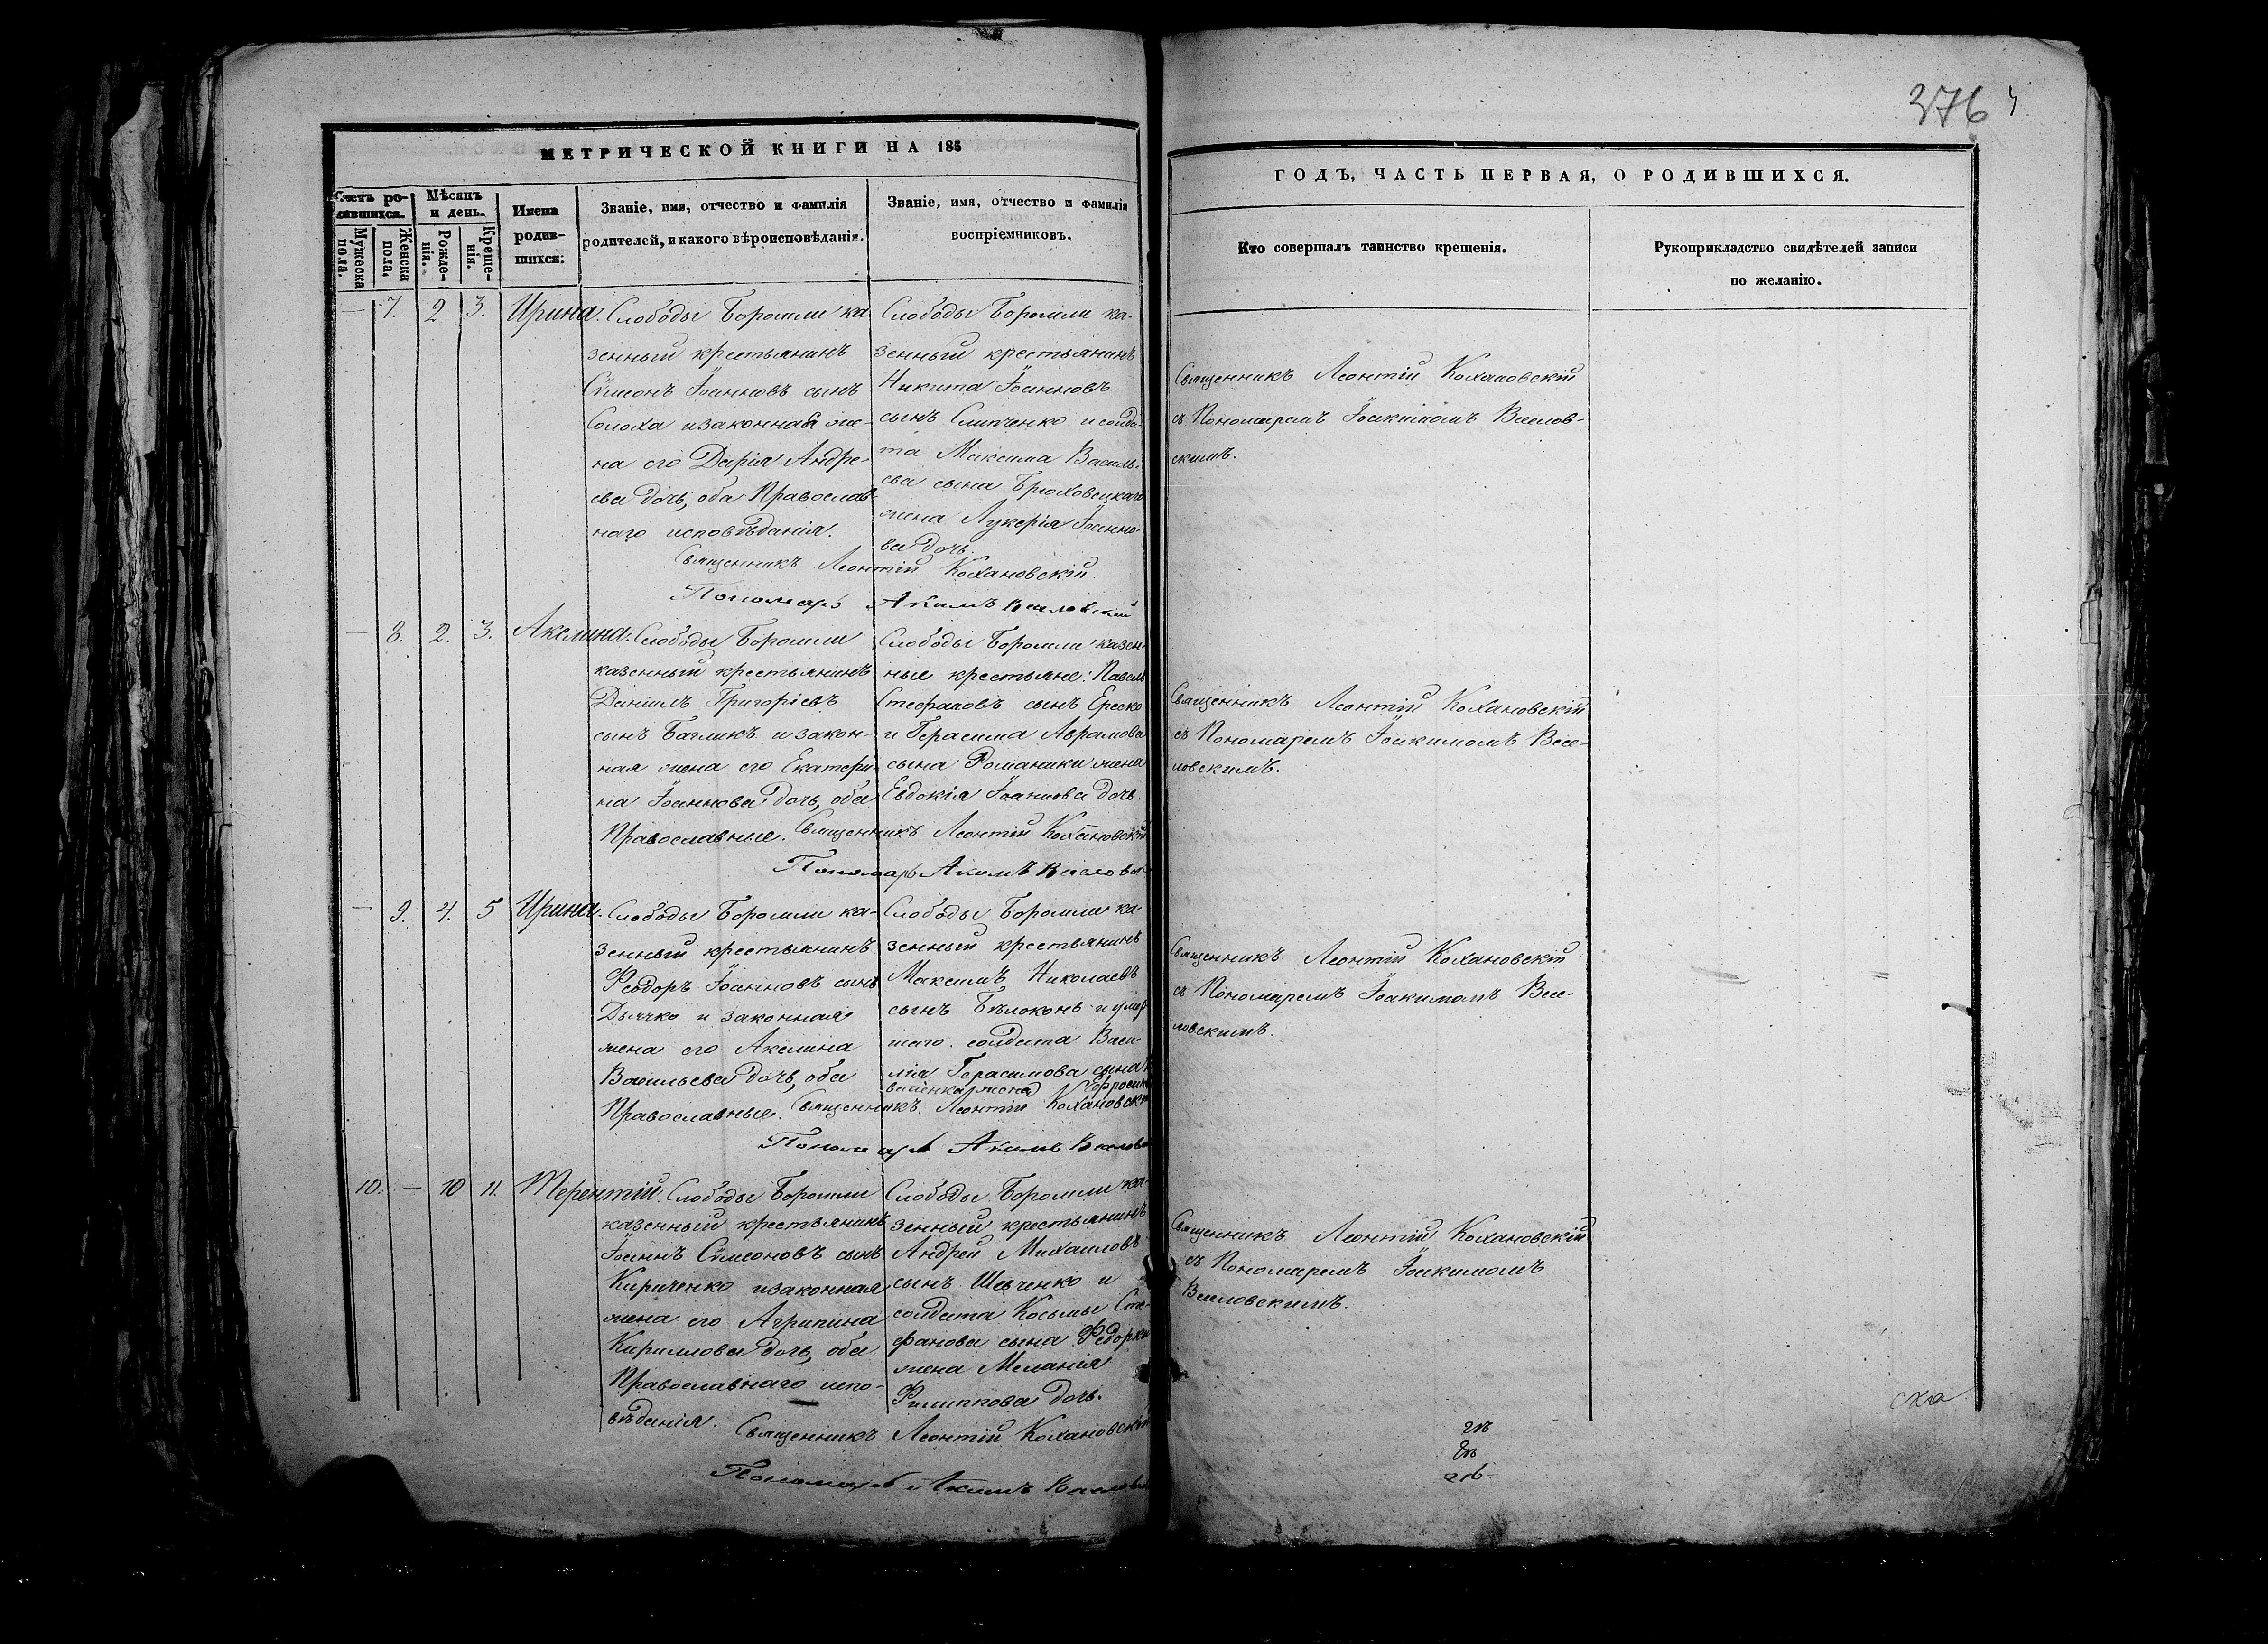 376 4
МЕТРИЧЕСКОЙ КНИГИ НА 185
ГОДЪ, ЧАСТЬ ПЕРВАЯ, О РОДИВШИХСЯ.
Счетъ ро-
дившихся.
Мужеска
пола.
Женска
пола.
Мѣсяцъ
и день.
Рожде-
нія.
Креще-
нія.
Имена
родив-
шихся.
Званіе, имя, отчество и фамилія
родителей, и какого вѣроисповѣданія.
Званіе, имя, отчество и фамилія
воспріемниковъ.
Кто совершалъ таинство крещенія.
Рукоприкладство свидѣтелей записи
по желанію.
— 7. 2 3. Ирина.
Слободы Боромли ка
зенный крестьянинъ
Сѷмеонъ Іоанновъ сынъ
Солоха и законная же-
на его Дарія Андре-
ева дочь, оба Православ-
наго исповѣданія.
Слободы Боромли ка-
зенный крестьянинъ
Никита Іоанновъ
сынъ Слипченко и солда-
та Максима Василь-
ева сына Брюховецкаго
жена Лукерія Іоанно-
ва дочь.
Священникъ Леонтій Кохановскій.
Пономарь Акимъ Веселовскій
Священникъ Леонтій Кохановскій
съ Пономаремъ Іоакимомъ Веселов-
скимъ.
— 8. 2. 3. Акелина.
Слободы Боромли
казенный крестьянинъ
Даніилъ Григоріевъ
сынъ Багликъ и закон-
ная жена его Екатери-
на Іоаннова дочь, оба
Православные.
Слободы Боромли казен-
ные крестьяне: Павелъ
Стефановъ сынъ Ереско
и Герасима Аврамова
сына Романики жена
Евдокія Іоаннова дочь.
Священникъ Леонтій Кохановскій
Пономарь Акимъ
Священникъ Леонтій Кохановскій
съ Пономаремъ Іоакимомъ Весе-
ловскимъ.
— 9. 4. 5 Ирина.
Слободы Боромли ка-
зенный крестьянинъ
Ѳеодоръ Іоанновъ сынъ
Дьячко и законная
жена его Акелина
Васильева дочь, оба
Православные.
Слободы Боромли ка-
зенный крестьянинъ
Максимъ Николаевъ
сынъ Бѣлоконь и умер-
шаго солдата Васи-
лія Герасимова сына
жена
Священникъ Леонтій Кохановскій
Пономарь Акимъ
Священникъ Леонтій Кохановскій
съ Пономаремъ Іоакимомъ Весе-
ловскимъ.
10. — 10 11. Терентій.
Слободы Боромли
казенный крестьянинъ
Іоаннъ Сѷмеоновъ сынъ
Кириченко и законная
жена его Агрипина
Кириллова дочь, оба
Православнаго испо-
вѣданія.
Слободы Боромли ка-
зенный крестьянинъ
Андрей Михаиловъ
сынъ Шевченко и
солдата Косьмы Сте-
фанова сына Ѳедорки
жена Меланія
Филиппова дочь.
Священникъ Леонтій Кохановскій
Пономарь Акимъ
Священникъ Леонтій Кохановскій
съ Пономаремъ Іоакимомъ
Веселовскимъ.